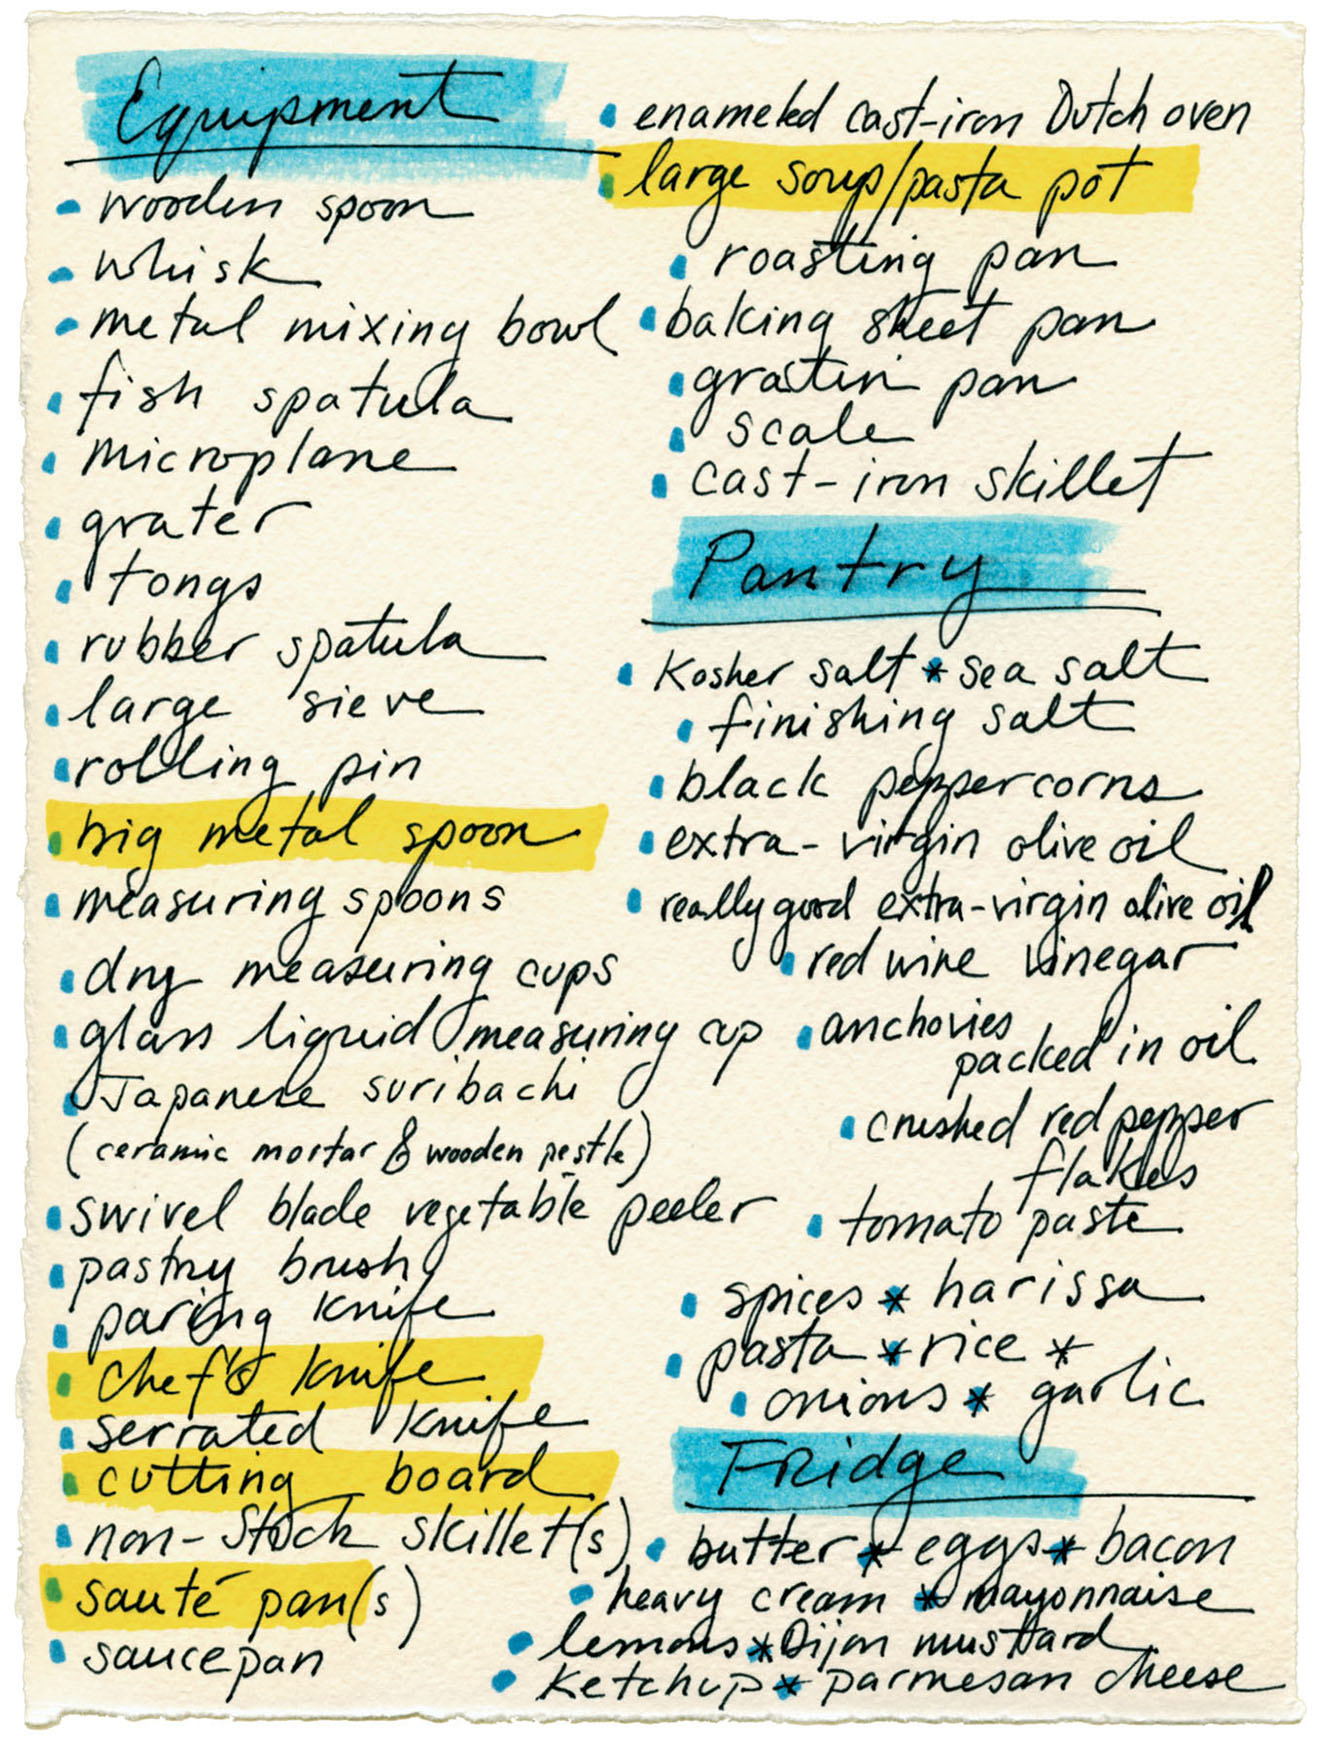 Equipment
• wooden spoon
• whisk
• metal mixing bowl
• fish spatula
• microplane
• grater
• tongs
• rubber spatula
• large sieve
• rolling pin
• big metal spoon
• measuring spoons
• dry measuring cups
• glass liquid measuring cup
• Japanese suribachi
(ceramic mortar & wooden pestle)
• swivel blade vegetable peeler
• pastry brush
• paring knife
• chef's knife
• serrated knife
• cutting board
• non-stick skillet(s)
• sauté pan(s)
• saucepan
• enameled cast-iron Dutch oven
• large soup/pasta pot
• roasting pan
• baking sheet pan
• gratin pan
• scale
• cast-iron skillet
Pantry
• Kosher salt * sea salt
• finishing salt
• black peppercorns
• extra-virgin olive oil
• really good extra-virgin olive oil
• red wine vinegar
• anchovies
packed in oil
• crushed red pepper
flakes
• tomato paste
• spices * harissa
• pasta * rice *
• onions * garlic
Fridge
• butter * eggs * bacon
• heavy cream * mayonnaise
• lemons * Dijon mustard
• Ketchup * parmesan cheese